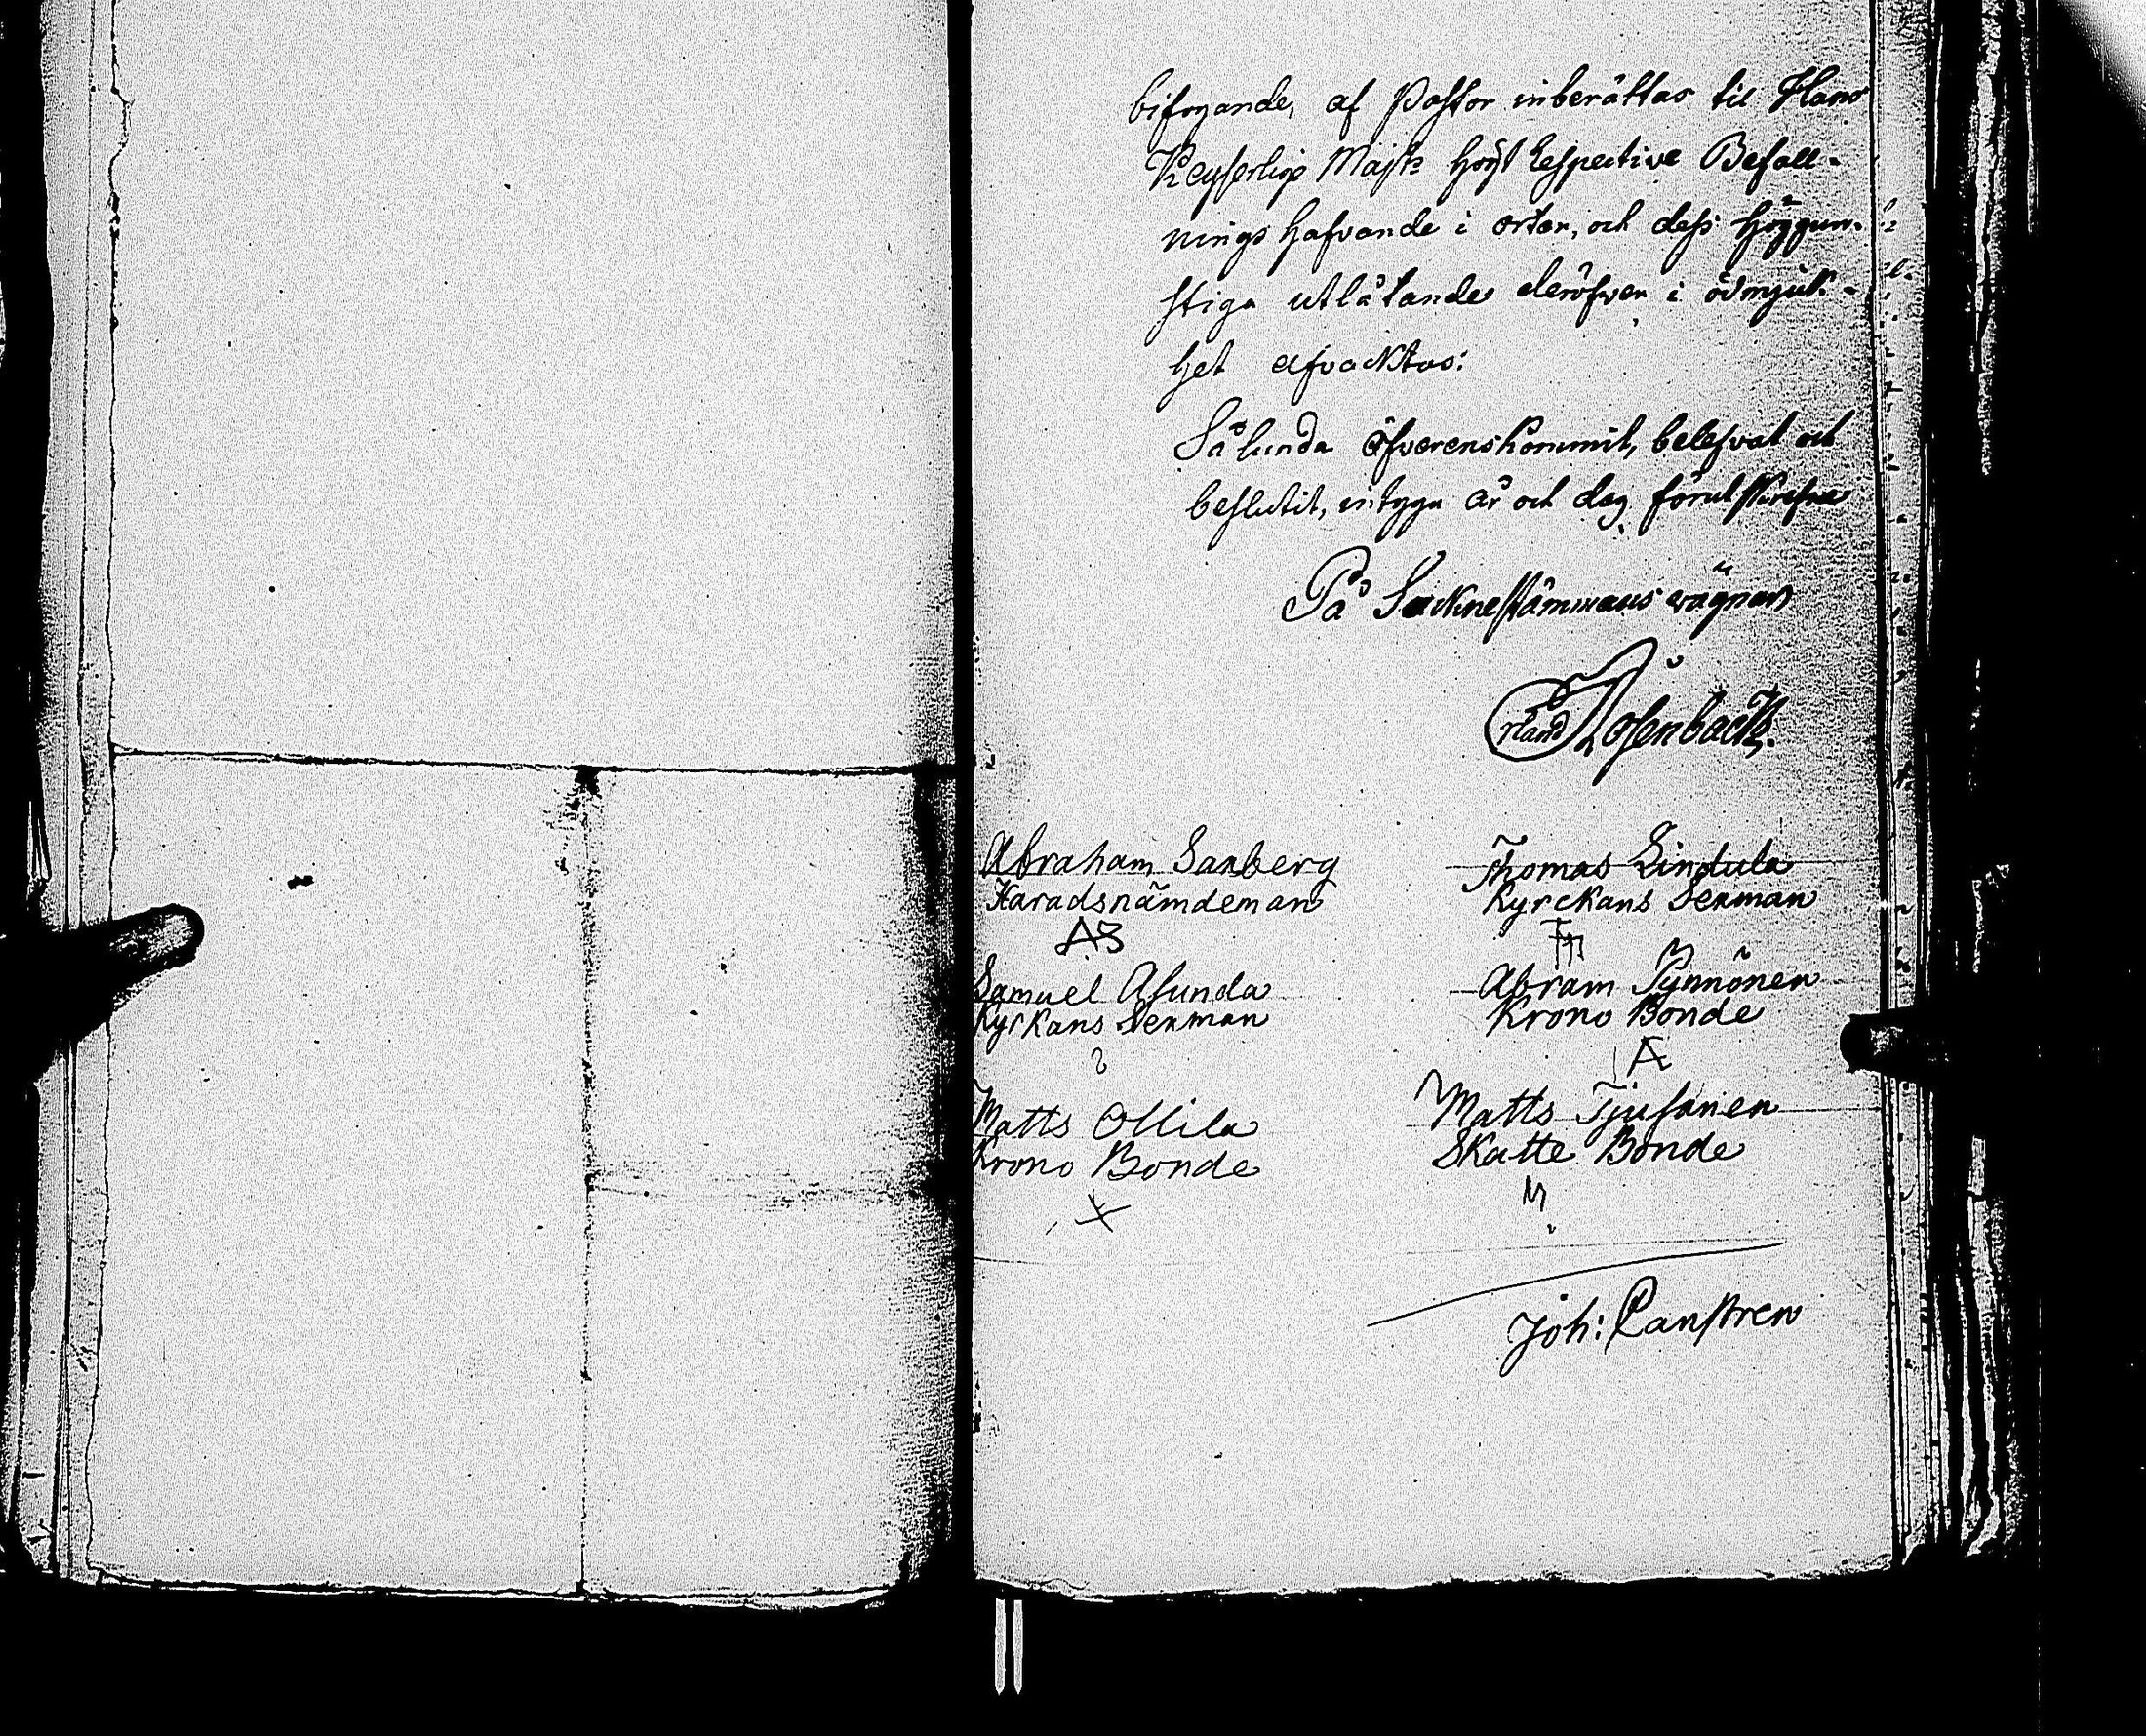 bifogande, af Pastor inberättas til Hans
Keyserlige Majsts högst Respective Befall-
nings hafvande i orten, och dess höggun-
stiga utlåtande deröfver i ödmjuk-
het afvacktas:
Sålunda öfverenskommit, belefvat och
beslutit, intyga år och dag förut skrefne
På Sockne stämmans vägnar
Erland Rosenback.
Abraham Sanberg
Haradsnämdeman
AS
Samuel Asunda
Kyrkans Sexman
Matts Ollila
Krono Bonde
Thomas Lindula
Kyrckans Sexman
Abram Pynnönen
Krono Bonde
A
Matts Tjusanen
Skatte Bonde
M
Joh: Canstren